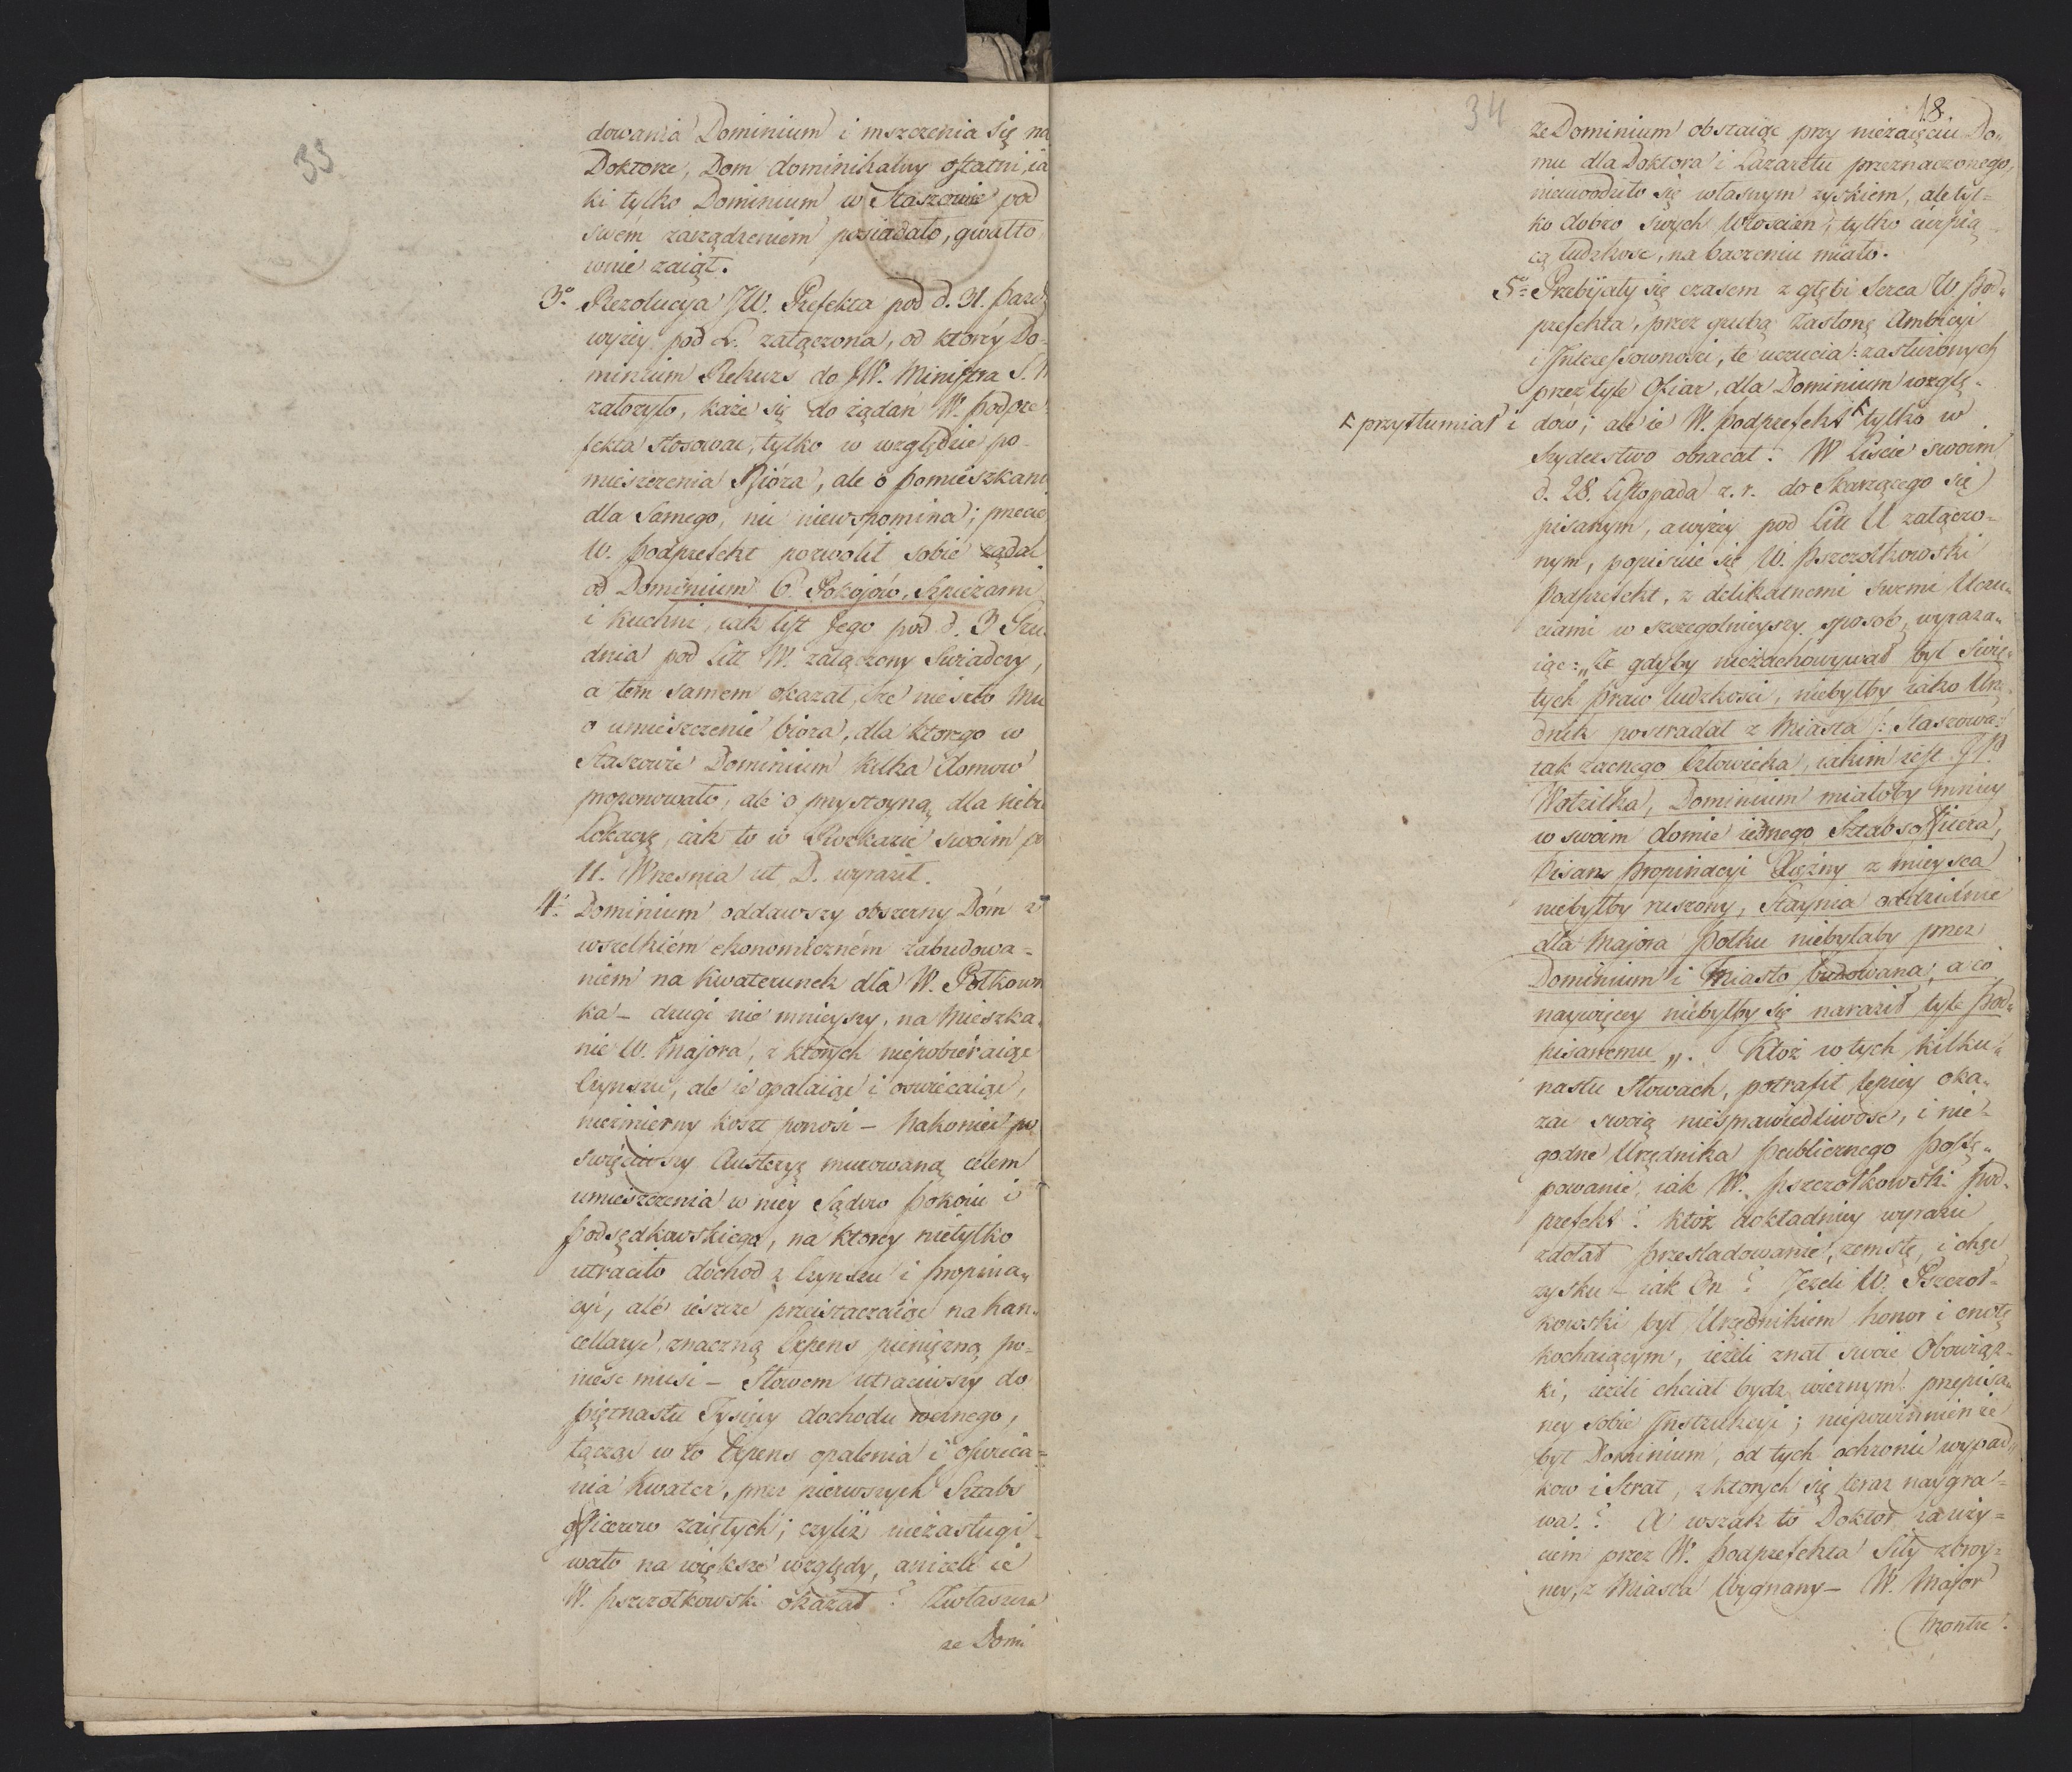 33
dowania Dominium i mszczenia się na
Doktorze, Dom dominikalny ostatni, ia
ki tylko Dominium w Staszowie pod
swém zarządzeniem posiadało, gwałto
wnie zaiął.
3o Rezolucyja JW. Prefekta pod d. 31. Pazd.
wyżey pod Lr. załączona, od którey Do-
minium Rekurs do JW. Ministra S. W
założyło, każe się do żądań W. Podpre-
fekta stosować, tylko w względzie po-
mieszczenia Bióra, ale o pomieszkani
dla Samego, nic niewspomina; przecie
W. Podprefekt pozwolił sobie żądać
od Dominium 6. Pokojów, Szpiżarni
i kuchni, iak list Jego pod d. 3 Gru-
dnia pod Litt W. załączony Swiadczy,
a tém samem okazał, że nie szło mu
o umieszczenie bióra, dla którego w
Staszowie Dominium kilka domów
proponowało, ale o przystoyną dla siebie
Lokacyę, iak to w Rozkazie swoim po
11. Września ut D. wyraził.
4. Dominium oddawszy obszerny Dóm z
wszelkiém ekonomiczném zabudowa-
niem na kwaterunek dla W. Półkown
ka – drugi nie mnieyszy, na Mieszka-
nie W. Majora, z których niepobieraiąc
Czynszu, ale ie opalaiąc i oświecaiąc,
niezmierny koszt ponosi – Nakoniec po
święciwszy Austeryę murowaną celem
umieszczenia w niey Sądów Pokoiu i
Podsędkowskiego, na którey nietylko
utraciło dochód z Czynszu i propina-
cyi, ale ieszcze przeistaczaiąc na kan-
cellarye, znaczną Expens pieniężną po-
nieść musi – Słowem utraciwszy do
piętnastu Tysięcy dochodu rocznego,
łącząc w to Expens opalenia i oświeca-
nia kwater, przez pierwszych Sztabs
officerów zaiętych; czyliż niezasługi-
wało na większe względy, aniżeli ie
W. Pszczołkowski okazał? Zwłaszcza
że Domi
34
18.
że Dominium obstaiąc przy niezaięciu Do-
mu dla Doktora i Lazaretu przeznaczonego,
niewodziło się własnym zyskiem, ale tyl-
ko dobro swych Włościan, tylko cierpią-
cą ludzkość, na baczeniu miało.
5o Przebijały się czasem z głębi Serca W. Pod-
prefekta, przez grubą zasłonę Ambicyi
i Interessowności, te uczucia: zasłużonych
przez tyle Ofiar, dla Dominium wzglę-
dów; ale ie W. Podprefekt ⌃ tylko w
⌃ przytłumiał i
Szyderstwo obracał. W Liście swoim
d. 28. Listopada z. r. do Skarżącego się
pisanym, a wyżey pod Litt U załączo-
nym, popisuie się W. Pszczołkowski
Podprefekt, z delikatnemi swemi Uczu-
ciami w szczególnieyszy sposób, wyraża-
iąc: „Że gdyby niezachowywał był Świę-
tych Praw ludzkości, niebyłby iako Urzę-
dnik postradał z Miasta /: Staszowa :/
tak zacnego Człowieka, iakim iest JP.
Watzilka, Dominium miałoby mniey
w swoim domie iednego Sztabsofficera,
Pisarz Propinacyi Xiężny z mieysca
niebyłby ruszony, Staynia oddzielnie
dla Majora Półku niebyłaby przez
Dominium i Miasto budowana, a co
naywięcey niebyłby się naraził tyle Pod-
pisanemu„. Któż w tych kilku-
nastu Słowach, potrafił lepiey oka-
zać swoią niesprawiedliwość, i nie-
godne Urzędnika Publicznego Postę-
powanie, iak W. Pszczołkowski Pod-
prefekt? któż dokładniey wyrazić
zdołał prześladowanie, zemstę, i chęć
zysku – iak On? Jeżeli W. Pszczoł-
kowski był Urzędnikiem honor i cnotę
kochaiącym, ieżeli znał swoie Obowiąz-
ki, ieżeli chciał bydź wiernym przepisa-
ney sobie Instrukcyi; niepowinienże
był Dominium, od tych ochronić wypad-
ków i Strat, z których się teraz naygra-
wa? A wszak to Doktor za uży-
ciem przez W. Podprefekta Siły zbroy-
ney, z Miasta Wygnany – W. Major